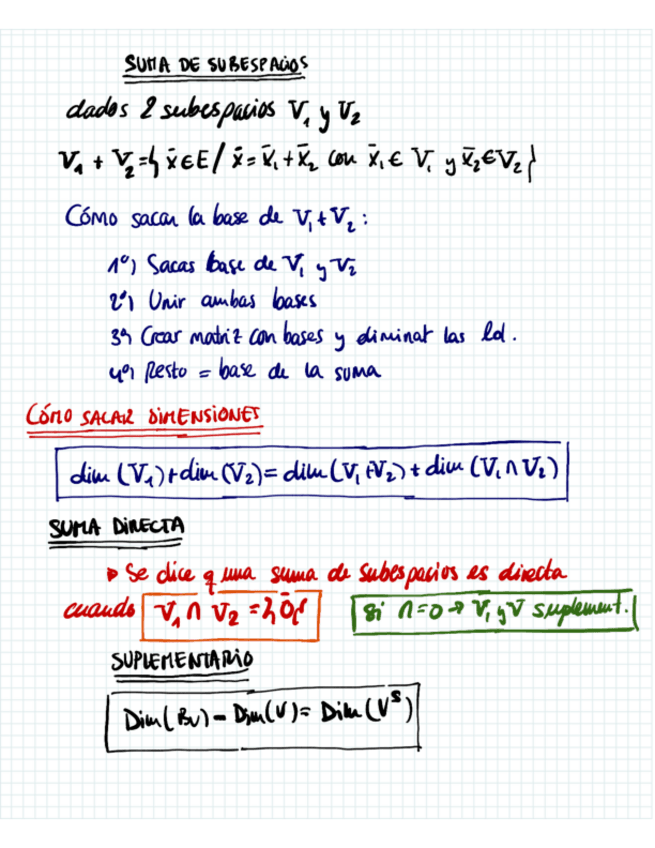 SUMA DE SUBESPACIOS
dados 2 subespacios V₁ y V₂
V₁ + V₂ = { x̄ ∈ E / x̄ = x̄₁ + x̄₂ con x̄₁ ∈ V₁ y x̄₂ ∈ V₂ }
Cómo sacar la base de V₁ + V₂ :
1º) Sacas base de V₁ y V₂
2º) Unir ambas bases
3º) Crear matriz con bases y eliminat las ld.
4º) Resto = base de la suma
CÓMO SACAR DIMENSIONES
dim (V₁) + dim (V₂) = dim (V₁ + V₂) + dim (V₁ ∩ V₂)
SUMA DIRECTA
▸ Se dice q una suma de subespacios es directa
cuando V₁ ∩ V₂ = {0̄} Si ∩ = 0 → V₁ y V suplement.
SUPLEMENTARIO
Dim (Bv) - Dim (V) = Dim (Vˢ)